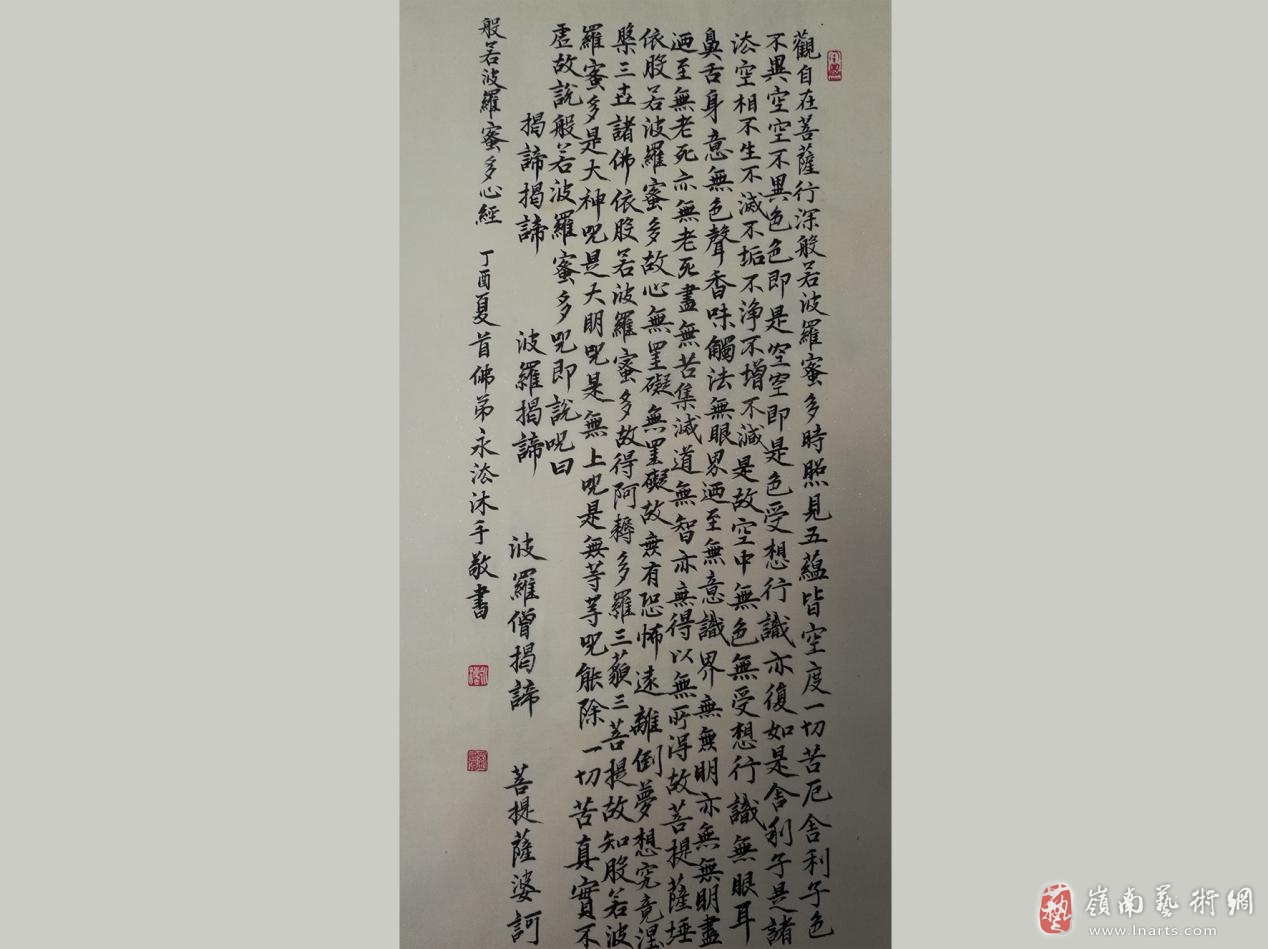 觀自在菩薩行深般若波羅蜜多時照見五蘊皆空度一切苦厄舍利子色
不異空空不異色色即是空空即是色受想行識亦復如是舍利子是諸
法空相不生不滅不垢不淨不增不減是故空中無色無受想行識無眼耳
鼻舌身意無色聲香味觸法無眼界迺至無意識界無無明亦無無明盡
迺至無老死亦無老死盡無苦集滅道無智亦無得以無所得故菩提薩埵
依般若波羅蜜多故心無罣礙無罣礙故無有恐怖遠離倒夢想究竟涅
槃三世諸佛依般若波羅蜜多故得阿耨多羅三藐三菩提故知般若波
羅蜜多是大神咒是大明咒是無上咒是無等等咒能除一切苦真實不
虛故說般若波羅蜜多咒即說咒曰
揭諦揭諦 波羅揭諦 波羅僧揭諦 菩提薩婆訶
般若波羅蜜多心經 丁酉夏首佛弟永法沐手敬書
嶺南藝術網
www.lnarts.com